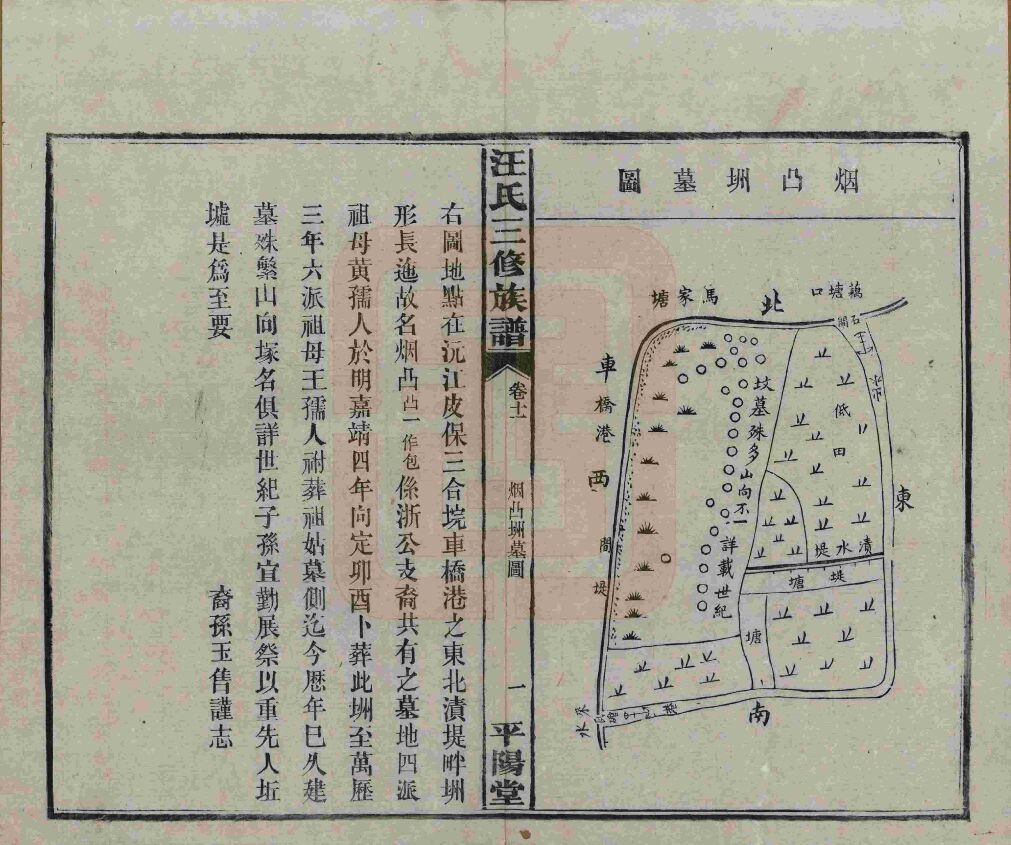 烟凸坩墓圖
藕塘口
石閘
北
馬家塘
車橋港
西
間堤
東
南
低田
漬水堤
堤塘
塘
墳墓殊多山向不一詳載世紀
汪氏三修族譜
卷十一
烟凸坩墓圖
一
平陽堂
右圖地點在沅江皮保三合垸車橋港之東北漬堤畔坩
形長迤故名烟凸凸一作包係浙公支裔共有之墓地四派
祖母黃孺人於明嘉靖四年向定卯酉卜葬此坩至萬歷
三年六派祖母王孺人祔葬祖姑墓側迄今歷年已久建
墓殊繁山向塚名俱詳世紀子孫宜勤展祭以重先人坵
墟是爲至要
裔孫玉售謹志